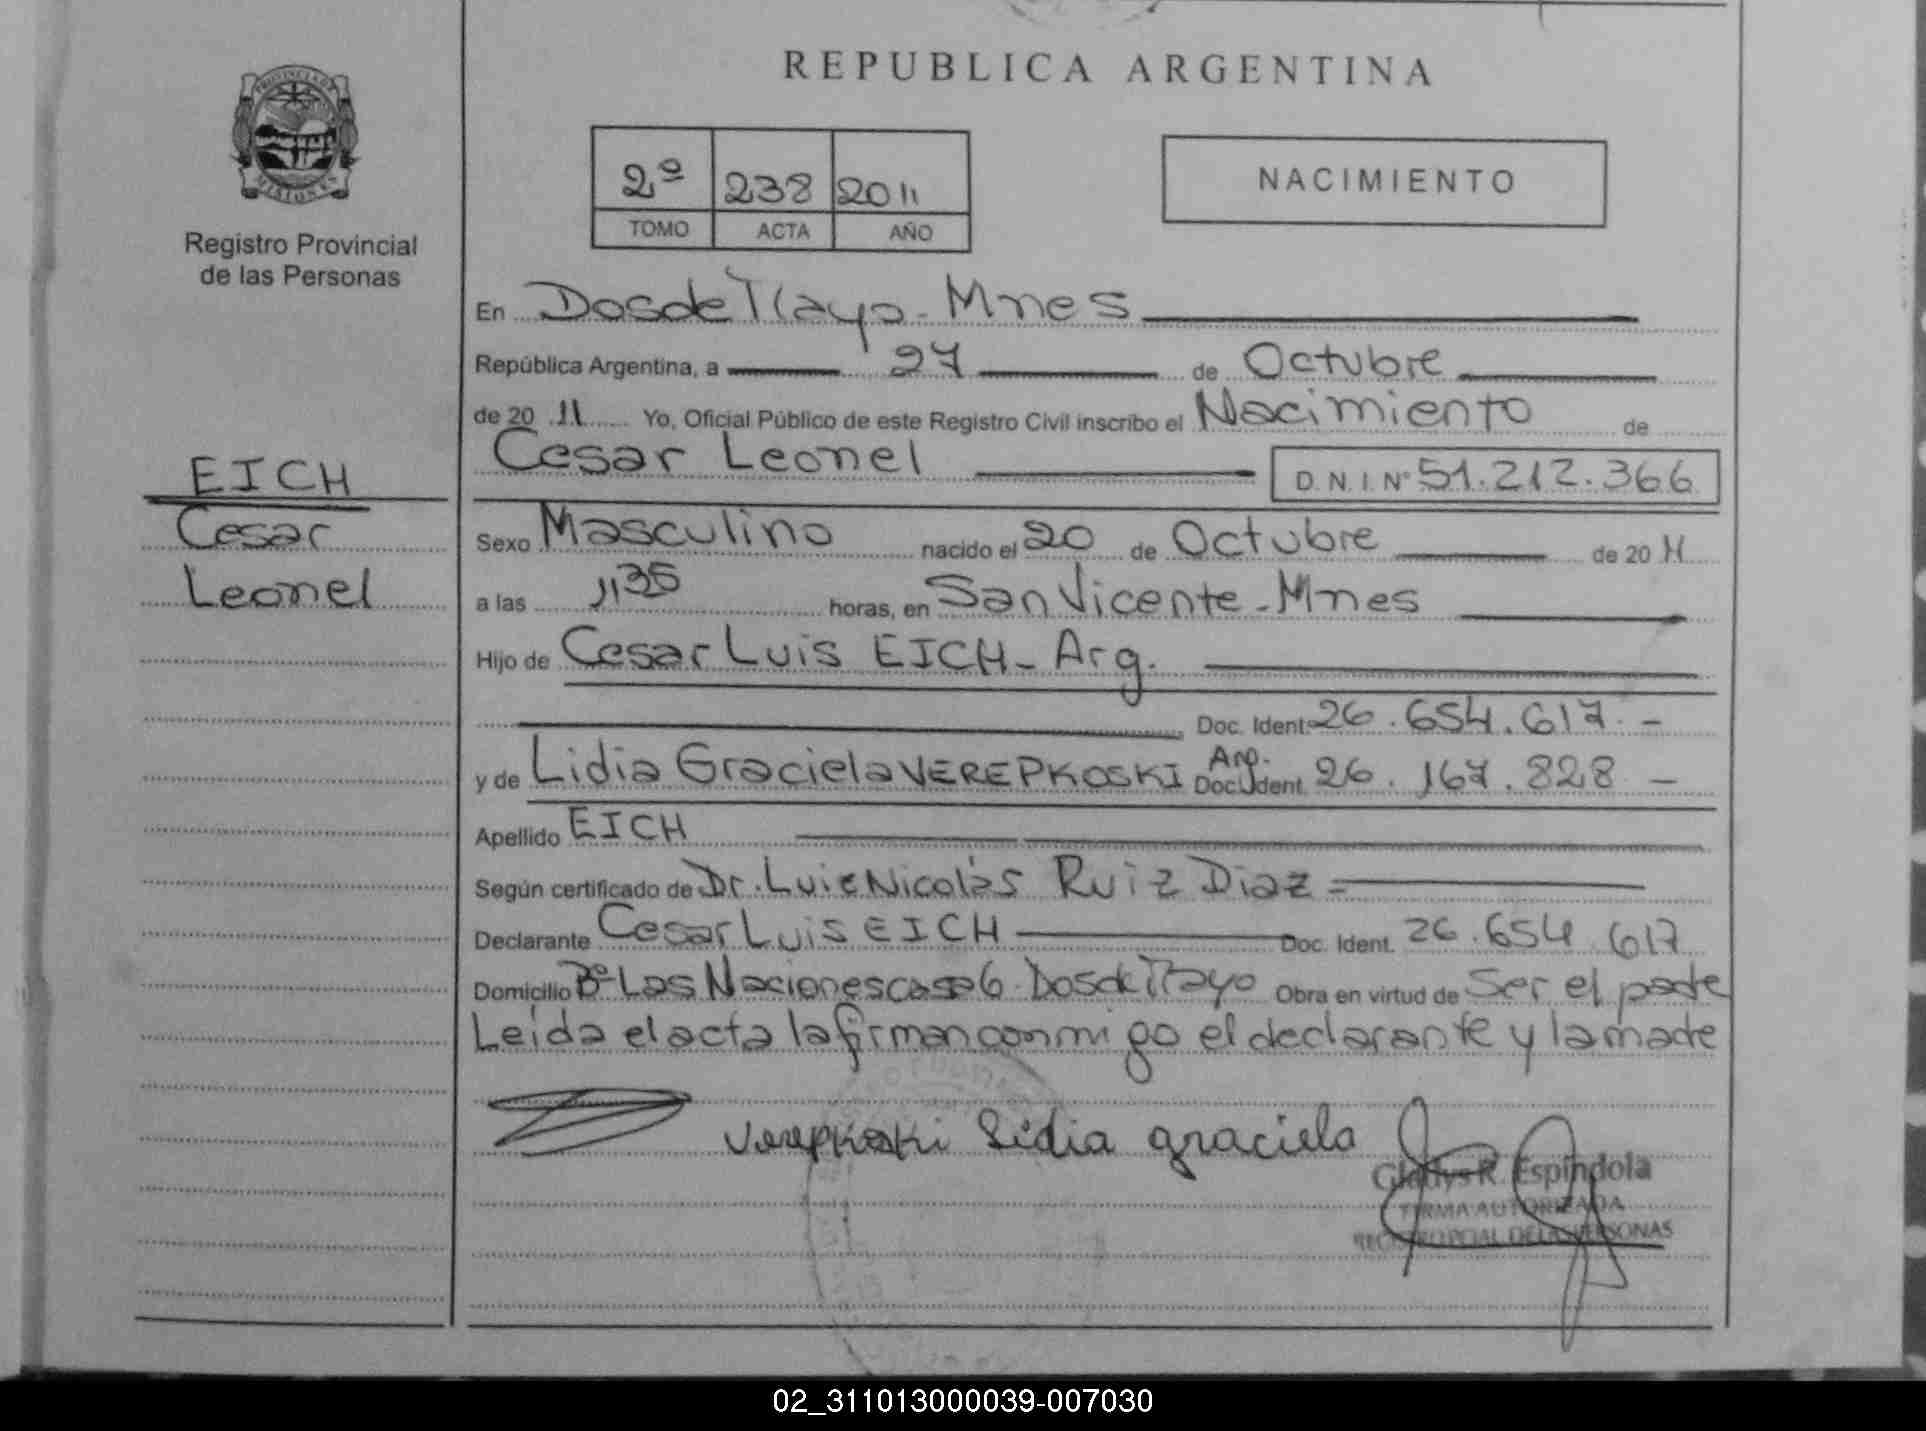 REPUBLICA ARGENTINA
PROVINCIA DE
MISIONES
Registro Provincial
de las Personas
2º 238 2011
TOMO ACTA AÑO
NACIMIENTO
En Dos de Mayo - Mnes
República Argentina, a 27 de Octubre
de 20 11 Yo, Oficial Público de este Registro Civil inscribo el Nacimiento de
Cesar Leonel D.N.I. Nº 51.212.366
EICH
Cesar
Leonel
Sexo Masculino nacido el 20 de Octubre de 20 11
a las 1135 horas, en San Vicente - Mnes
Hijo de Cesar Luis EICH - Arg.
Doc. Ident. 26.654.617 -
y de Lidia Graciela VEREPKOSKI Arg. Doc. Ident. 26.167.828 -
Apellido EICH
Según certificado de Dr. Luis Nicolás Ruiz Diaz =
Declarante Cesar Luis EICH Doc. Ident. 26.654.617
Domicilio Bº Las Naciones casa 6 Dos de Mayo Obra en virtud de Ser el padre
Leída el acta la firman conmigo el declarante y la madre
Verepkoski Lidia graciela
Gladys R. Espíndola
FIRMA AUTORIZADA
REGISTRO PCIAL DE LAS PERSONAS
02_311013000039-007030